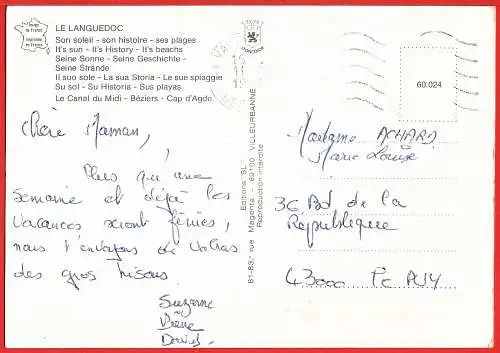 LE LANGUEDOC
Son soleil - son histoire - ses plages
It's sun - It's History - It's beachs
Seine Sonne - Seine Geschichte -
Seine Strände
Il suo sole - La sua Storia - Le sue spiaggie
Su sol - Su Historia - Sus playas
Le Canal du Midi - Béziers - Cap d'Agde.
60.024
Chère Maman,
Plus qu'une
semaine et déjà les
vacances seront finies,
nous t'envoyons de
des gros bisous
Suzanne
David
Editions "SL"
81-83, rue Magenta - 69100 VILLEURBANNE
Reproduction interdite
Madame ACHARD
Marie Louise
36 Bd de la
République
43000 Le PUY